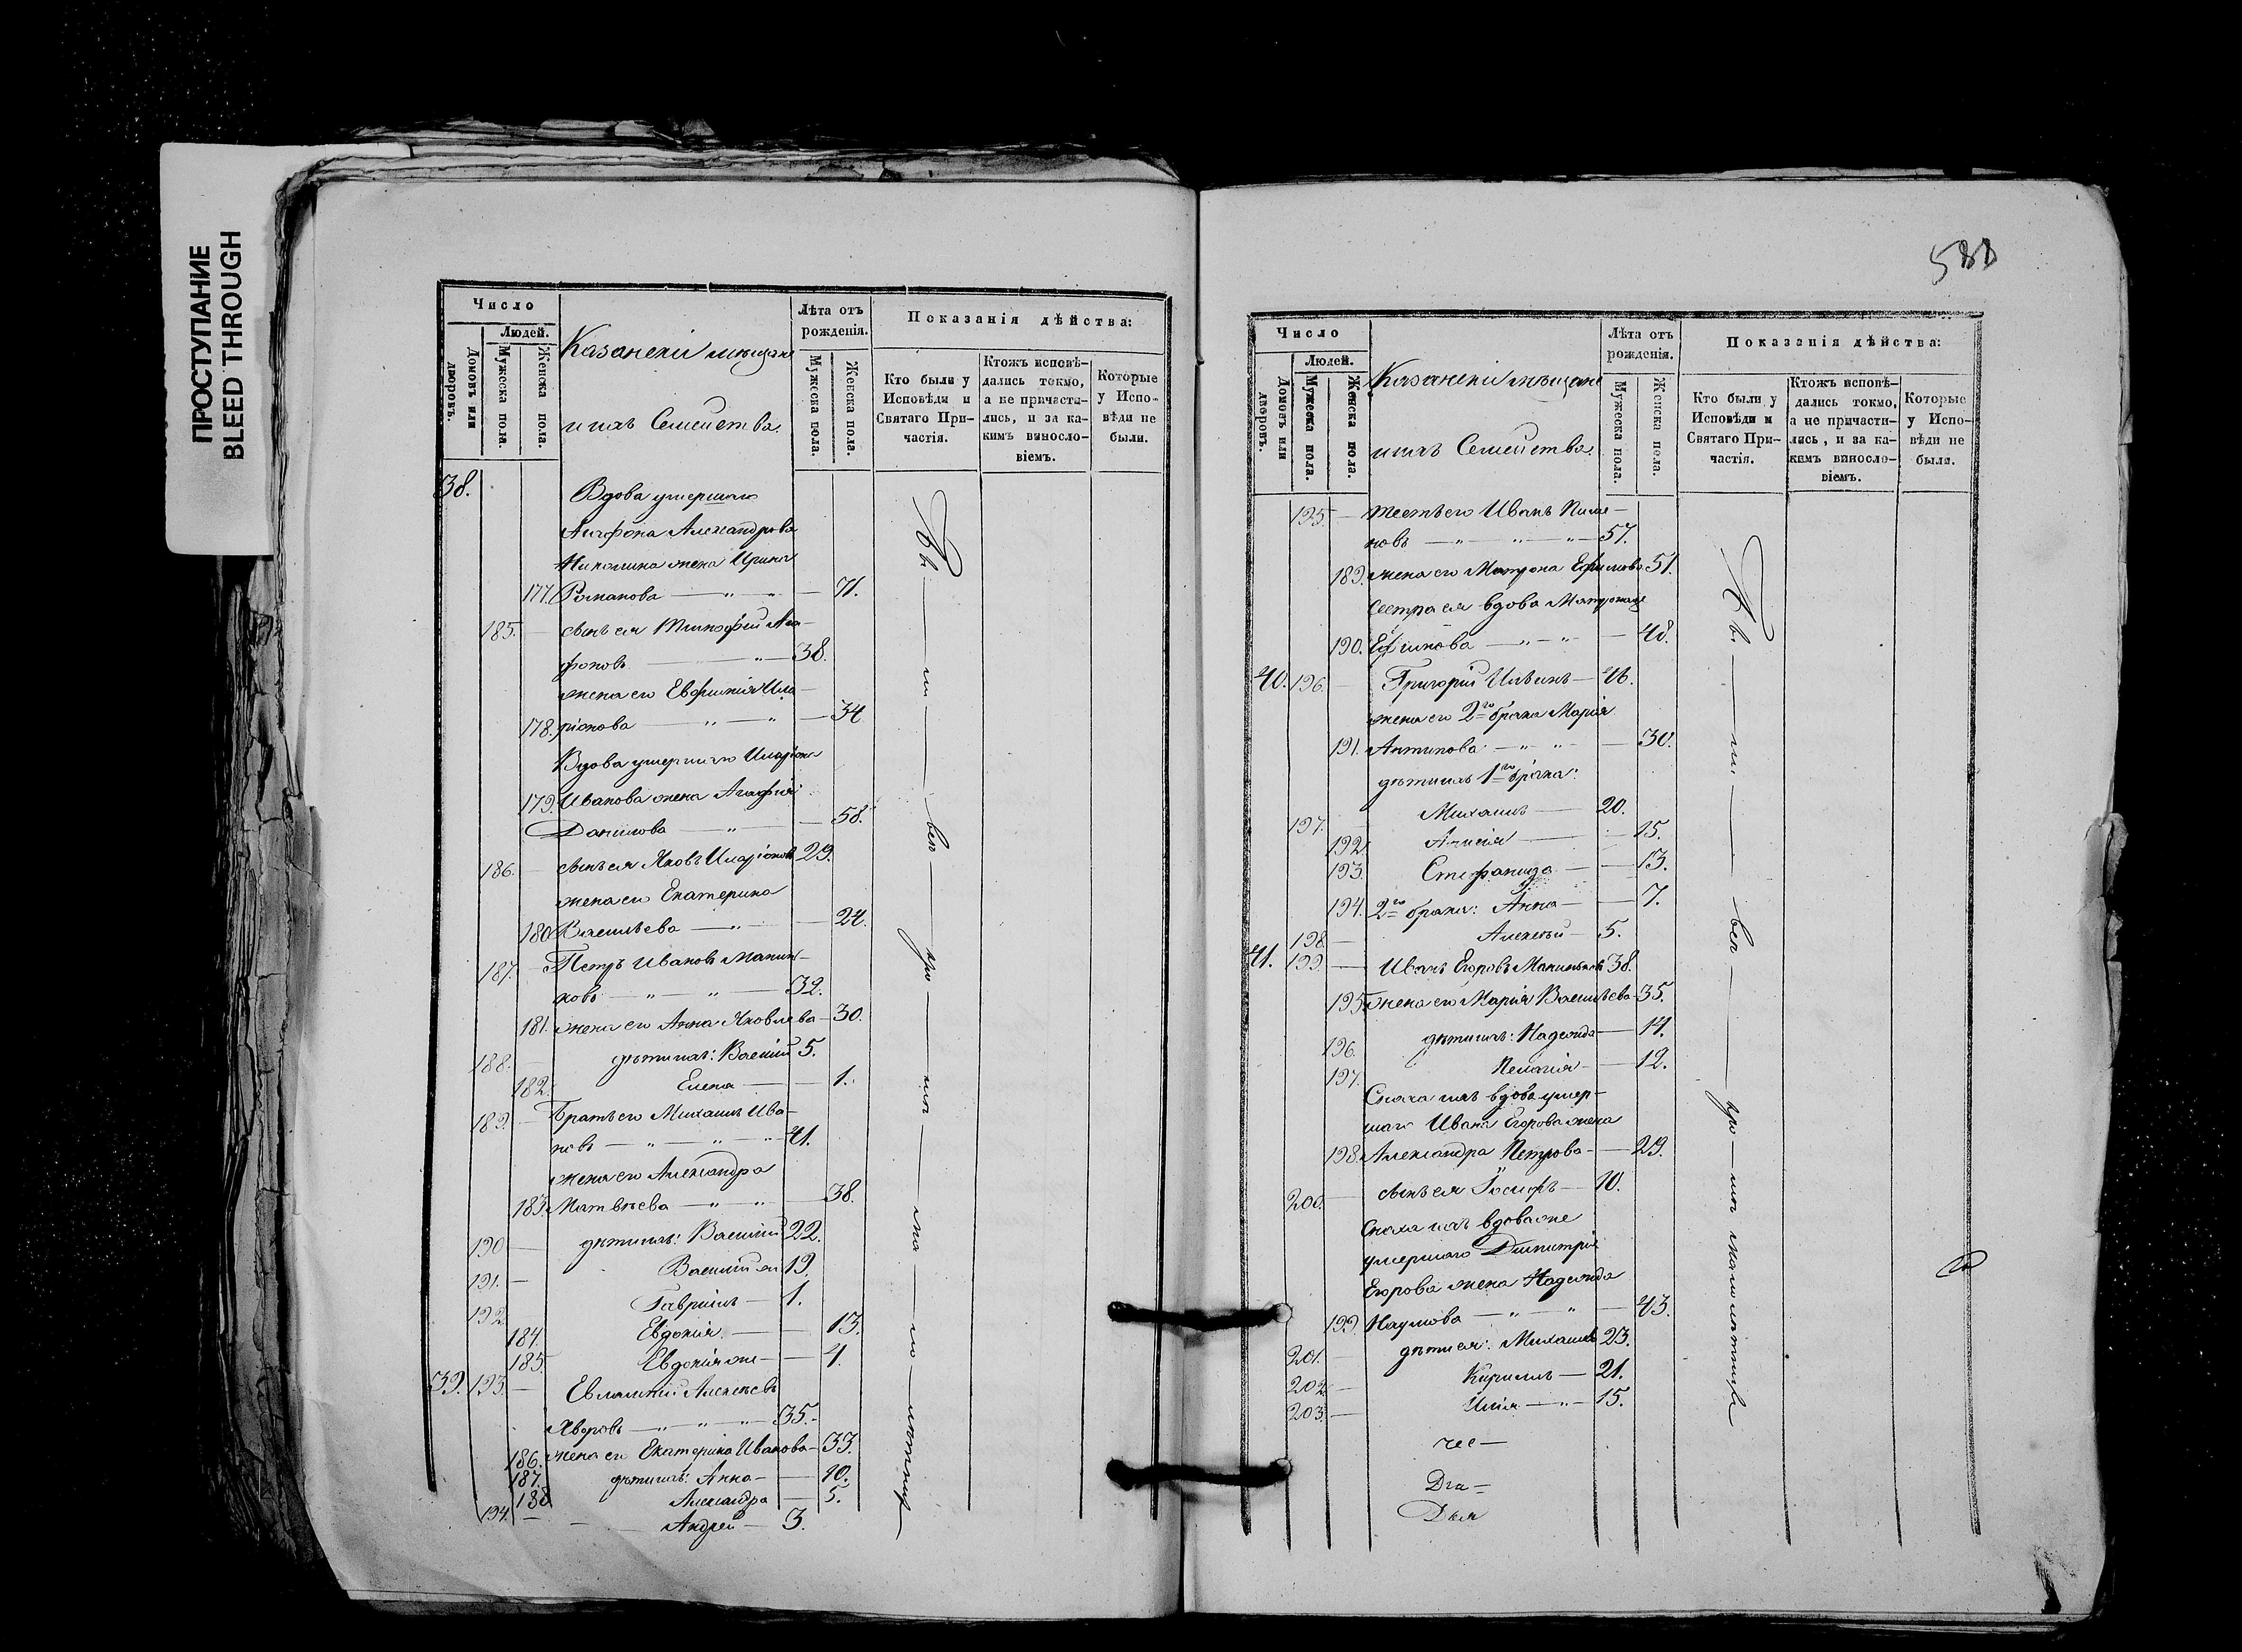 ПРОСТУПАНИЕ
BLEED THROUGH
Число
Людей.
Домовъ или дворовъ.
Мужеска пола.
Женска пола.
Казанскіи мѣщане
и ихъ Семейства.
Лѣта отъ рожденія.
Мужеска пола.
Женска пола.
Показанія дѣйства:
Кто были у Исповѣди и Святаго Причастія.
Ктожъ исповѣдались токмо, а не причастились, и за какимъ винословіемъ.
Которые у Исповѣди не были.
38. Вдова умершаго
Агафона Александрова
жена Ирина
177. Романова — 71.
185. — сынъ ея Тимофей Ага-
фоновъ — 38.
жена его Евфимія Ила-
178. ріонова — 34
Вдова умершаго Иларіона
179. Иванова жена Агафия
Данилова — 58.
186. — сынъ ея Яковъ Иларіоновъ 29.
жена его Екатерина
180. Васильева — 24.
187. — Петръ Ивановъ
ковъ — 32.
181. жена его Анна Яковлева — 30.
188. — дѣти ихъ: Василій 5.
182. Елена — 1.
189. — Братъ его Михаилъ Ива-
новъ — 41.
жена его Александра
183. Матвѣева — 38.
190 — дѣти ихъ: Василій 22.
191. — Василій же 19.
192. Гавріилъ — 1.
184 Евдокія — 13.
185. Евдокія же — 4.
39. 193. — Евлампій Алексѣевъ
— 35.
186. жена его Екатерина Иванова — 33.
187. дѣти ихъ: Анна — 10.
188 Александра — 5.
194. — Андрей — 3.
588
Число
Людей.
Домовъ или дворовъ.
Мужеска пола.
Женска пола.
Казанскіи мѣщане
и ихъ Семейства.
Лѣта отъ рожденія.
Мужеска пола.
Женска пола.
Показанія дѣйства:
Кто были у Исповѣди и Святаго Причастія.
Ктожъ исповѣдались токмо, а не причастились, и за какимъ винословіемъ.
Которые у Исповѣди не были.
195. — тесть его Иванъ
новъ — 57.
189. жена его Матрона Ефимова 51.
Сестра ея вдова Матрона же
190. Ефимова — 48.
40. 196. — Григорій Ильинъ — 46.
жена его 2го брака Марія
191. Антипова — 30.
дѣти ихъ 1го брака:
197. Михаилъ — 20.
192. — 15.
193. Стефанида — 13.
194. 2го брака: Анна — 7.
198. — Алексѣй — 5.
41. 199. — Иванъ Егоровъ 38.
195. жена его Марія Васильева 35.
196. дѣти ихъ: Надежда — 14.
197. Пелагія — 12.
Сноха ихъ вдова умер-
шаго Ивана Егорова жена
198. Александра Петрова — 29.
200. — сынъ ея Іосифъ — 10.
Сноха ихъ вдова же
умершаго Димитрія
Егорова жена Надежда
199. Наумова — 43.
201. — дѣти ея: Михаилъ 23.
202. — Кириллъ — 21.
203. — Илія — 15.